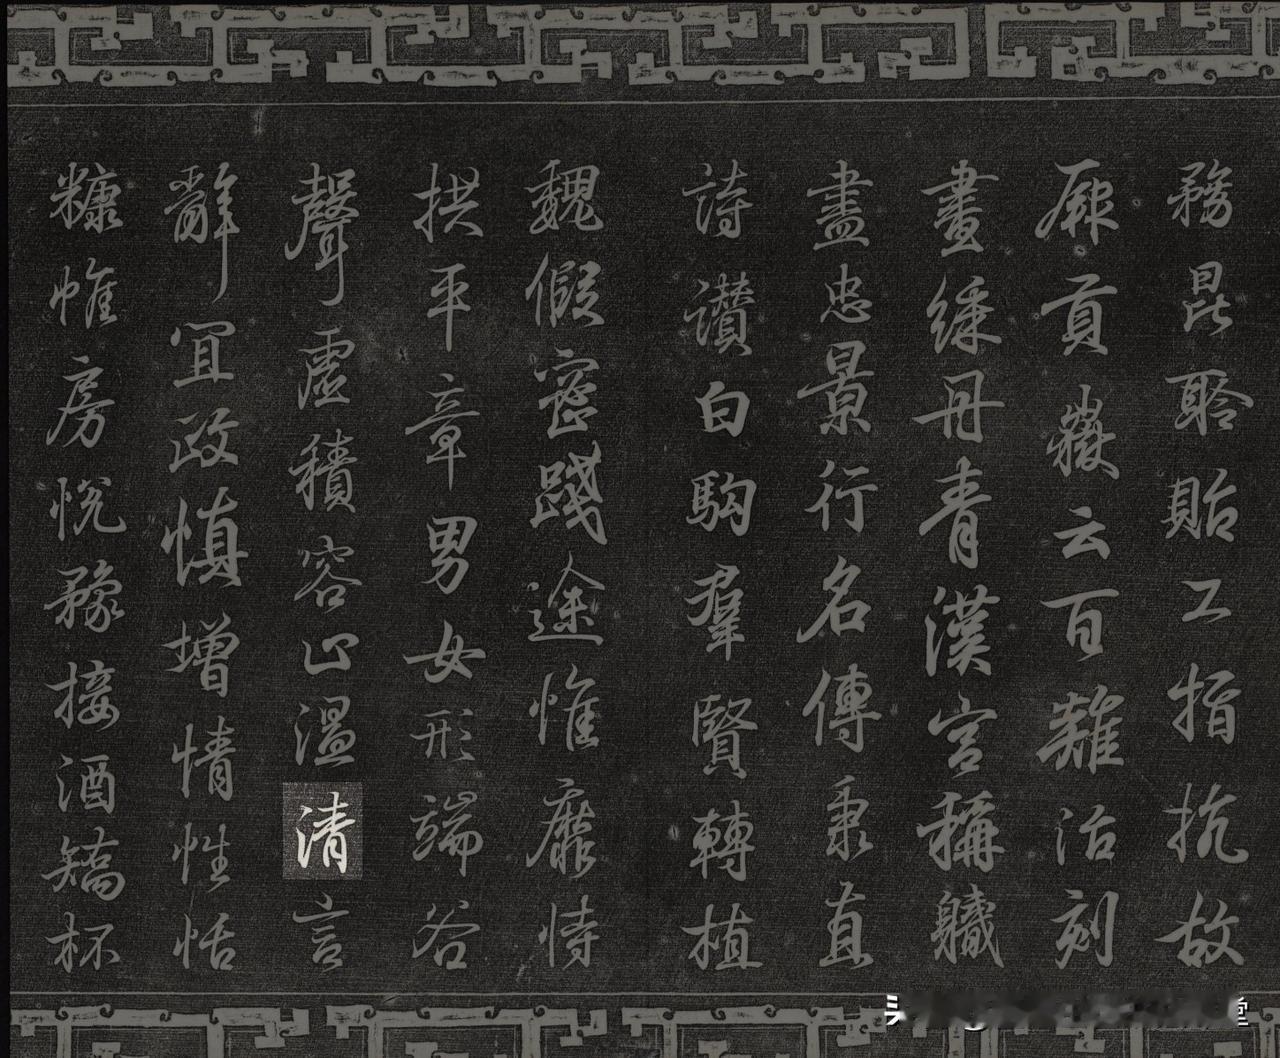 務昆聆貽工指抗故
厥貢嶽云百難治刻
畫綵丹青漢宮稱軄
盡忠景行名傳秉直
詩讚白駒羣賢轉植
魏假密踐途惟靡恃
拱平章男女形端谷
聲虛積容止溫清言
辭宜政慎增情性恬
糠帷房悅豫接酒矯杯